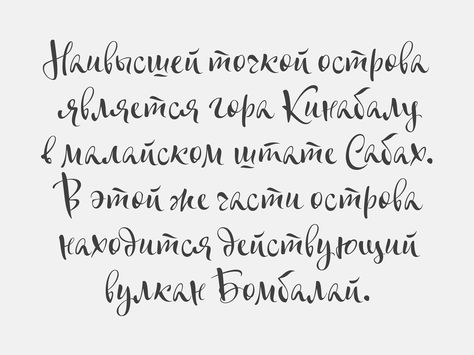 Наивысшей точкой острова
является гора Кинабалу
в малайском штате Сабах.
В этой же части острова
находится действующий
вулкан Бомбалай.